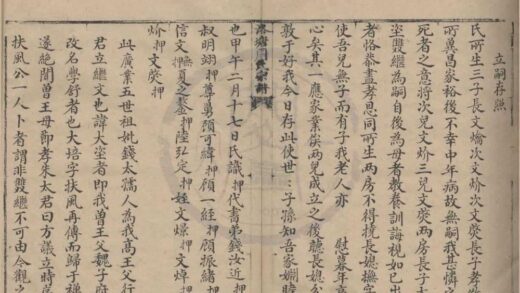 立嗣存照
氏所生三子長文爚次文炌次文燮長子孝
所冀昌家裕後不幸中年病故無嗣我甚憐
死者之意將次兒文炌三兒文燮兩房長子大
雙繼為嗣自後為母者教養訓誨視如己出
者恪恭盡孝思同所生兩房不得撓長媳撫
使吾兒無子而有子我老人亦 慰暮年
心矣其一應家業俟兩兒成立之後聽長媳公
敦于好我今日存此使世:子孫知吾家嫻
也甲午二月十七日氏識押代書弟錢汝近押
叔明翊押尊可緯押顧一經押顧振緒押
信文押夏之鏊押陸廷定押姪文煜押文焯押
炌押文燮押
此廣業五世祖妣錢太孺人為我高王父行
君立繼文也諱大者即我曾王父魏子府
改名學舒者也大培字扶風再傳而歸于
遂絕聞曾王母節孝朱太君曰方議立時
扶風公一人卜者謂非雙繼不可由今觀之